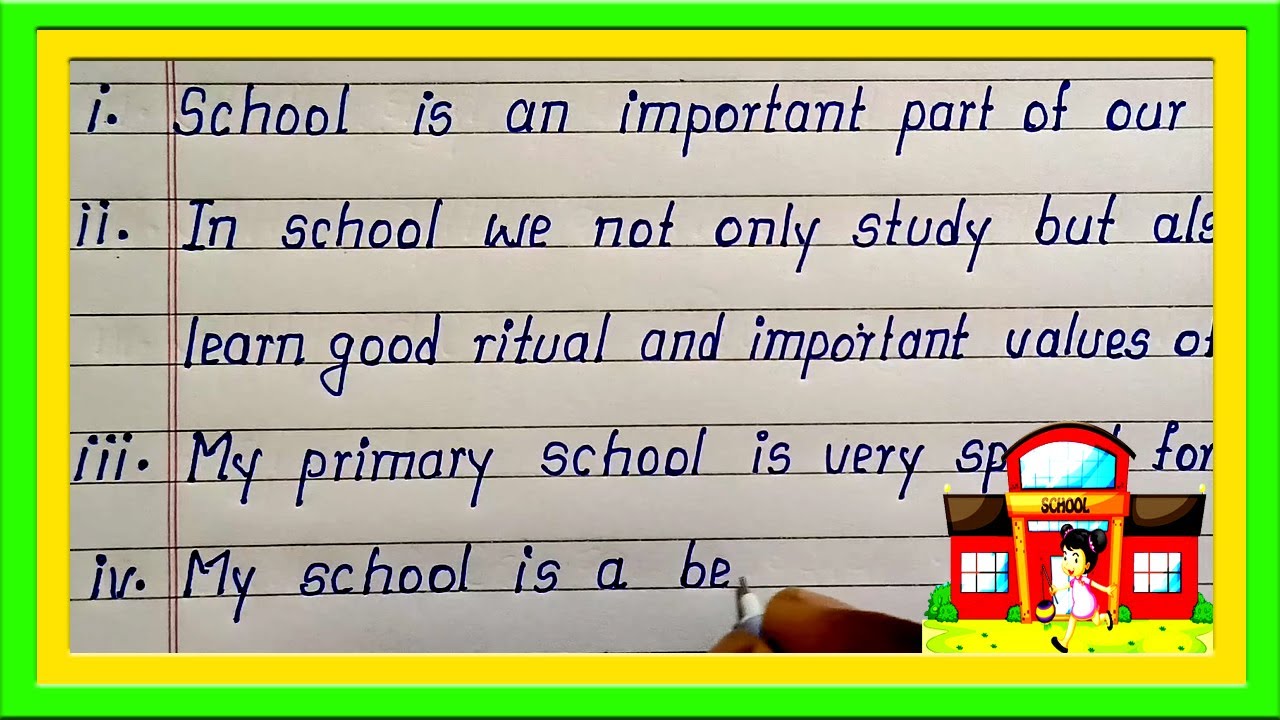 i. School is an important part of our
ii. In school we not only study but als
learn good ritual and important values of
iii. My primary school is very for
iv. My school is a be
SCHOOL